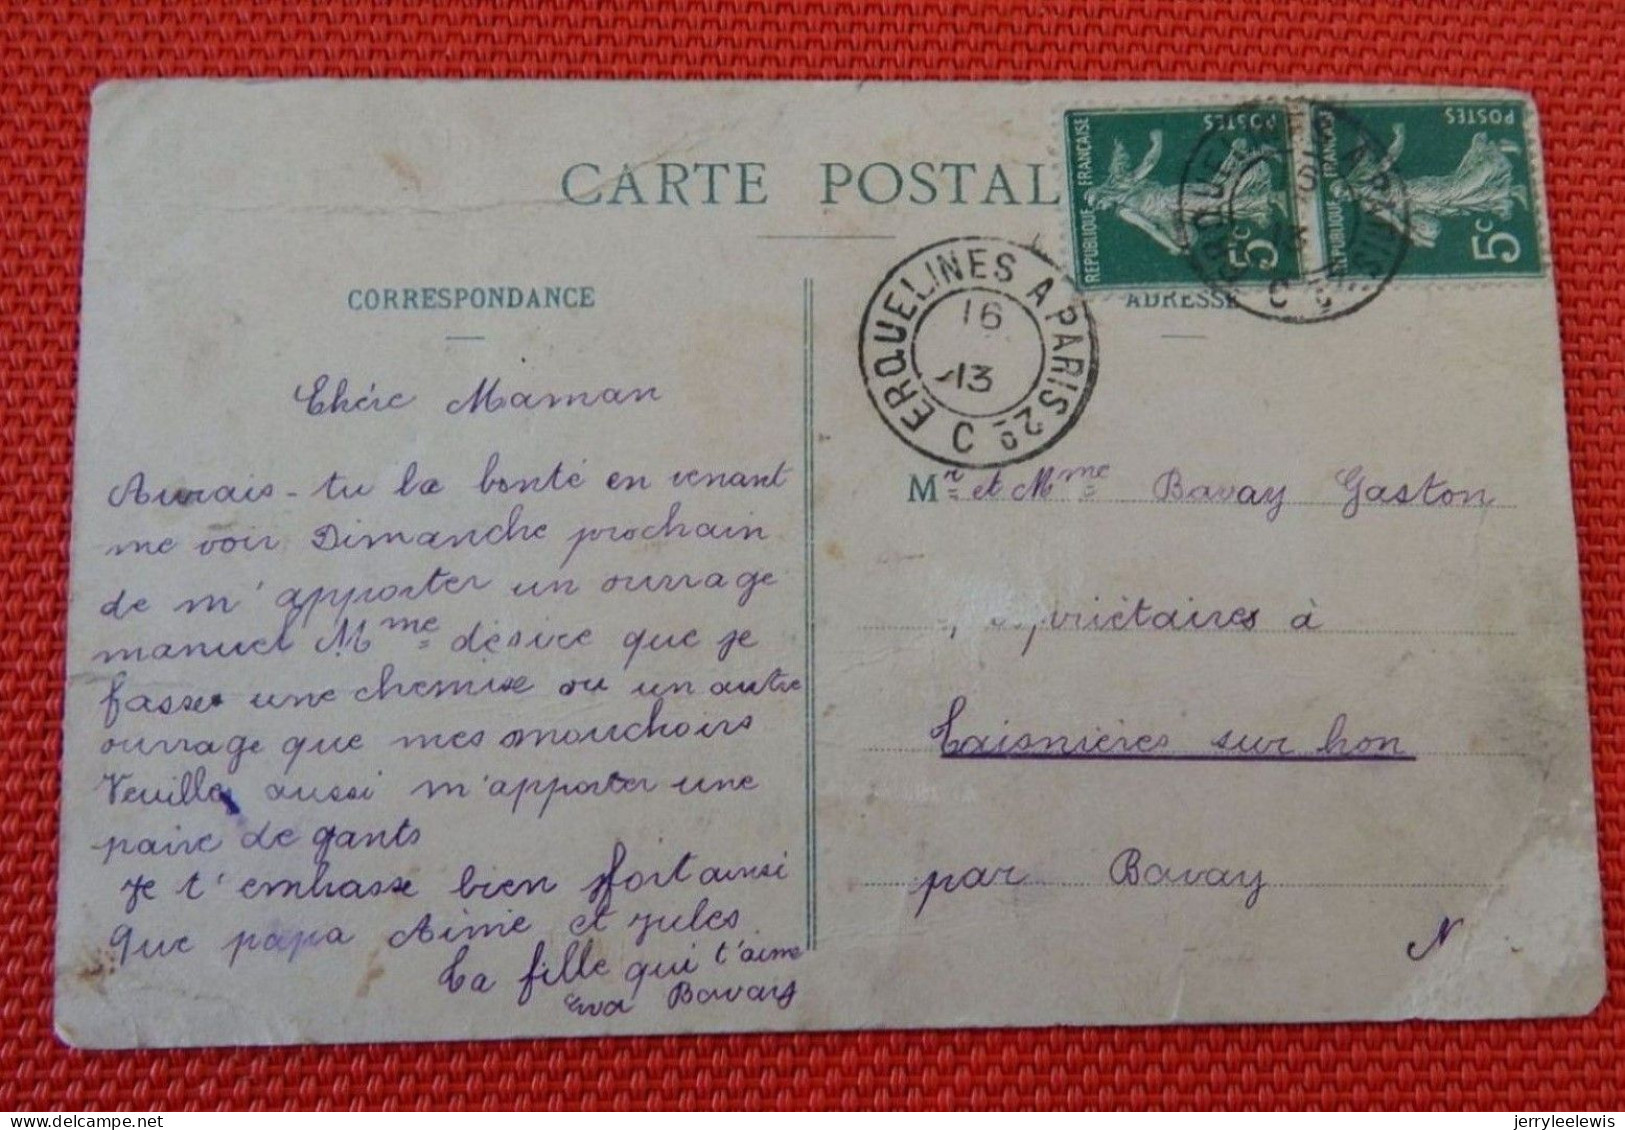 CARTE POSTALE
CORRESPONDANCE
Chère Maman
Aurais-tu la bonté en venant
me voir Dimanche prochain
de m'apporter un ouvrage
manuel Mme désire que je
fasse une chemise ou un autre
ouvrage que mes mouchoirs
Veuillez aussi m'apporter une
paire de gants
Je t'embrasse bien fort ainsi
que papa Aimé et Jules
Ta fille qui t'aime
Eva Bavay
REPUBLIQUE FRANÇAISE
POSTES
5c
REPUBLIQUE FRANÇAISE
POSTES
5c
ERQUELINES A PARIS 2º C
16
13
ADRESSE
Mr et Mme Bavay Gaston
propriétaires à
Taisnières sur hon
par Bavay
N
delcampe.net
jerryleelewis